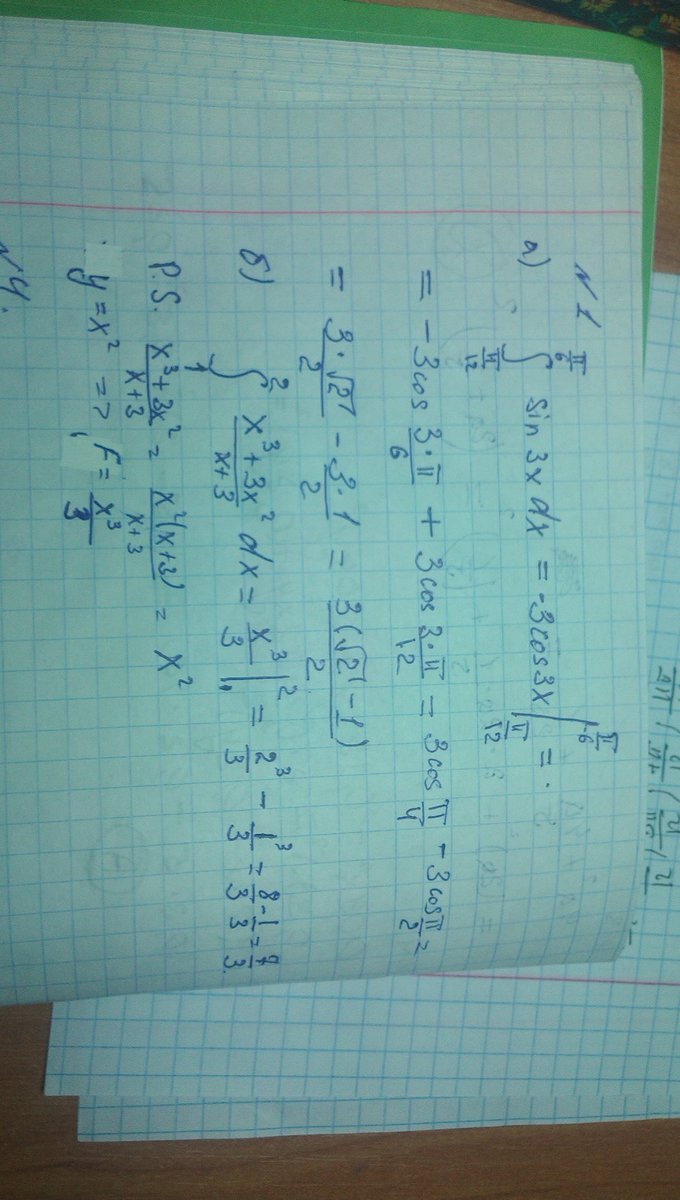 N 1
а) ∫_{π/12}^{π/6} sin 3x dx = -3cos3x |_{π/12}^{π/6} =
= -3cos (3·π)/6 + 3cos (3·π)/12 = 3cos π/4 - 3cos π/2 =
= (3·√2)/2 - (3·1)/2 = (3(√2 - 1))/2
б) ∫_1^2 (x³+3x²)/(x+3) dx = x³/3 |_1^2 = 2³/3 - 1³/3 = 8/3 - 1/3 = 7/3.
P.S. (x³+3x²)/(x+3) = (x²(x+3))/(x+3) = x²
y = x² => F = x³/3
N4.